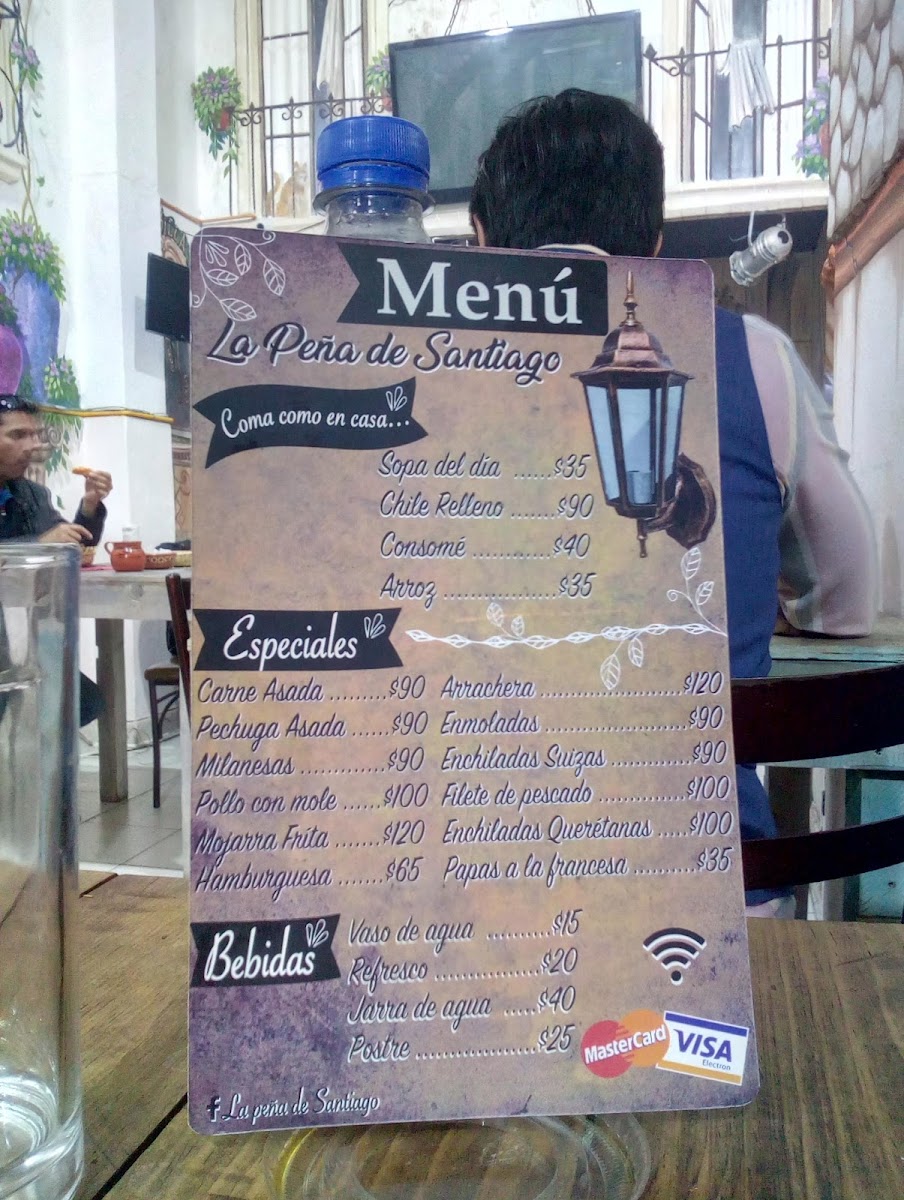 Menú
La Peña de Santiago
Coma como en casa...
Sopa del dia ......$35
Chile Relleno .......$90
Consomé ............$40
Arroz .................$35
Especiales
Carne Asada .........$90
Pechuga Asada ......$90
Milanesas .............$90
Pollo con mole ......$100
Mojarra Frita ........$120
Hamburguesa .......$65
Arrachera ......................$120
Enmoladas ......................$90
Enchiladas Suizas .............$90
Filete de pescado .............$100
Enchiladas Querétanas .....$100
Papas a la francesa ..........$35
Bebidas
Vaso de agua ..........$15
Refresco ................$20
Jarra de agua ......$40
Postre ..................$25
MasterCard
VISA
Electron
f La peña de Santiago